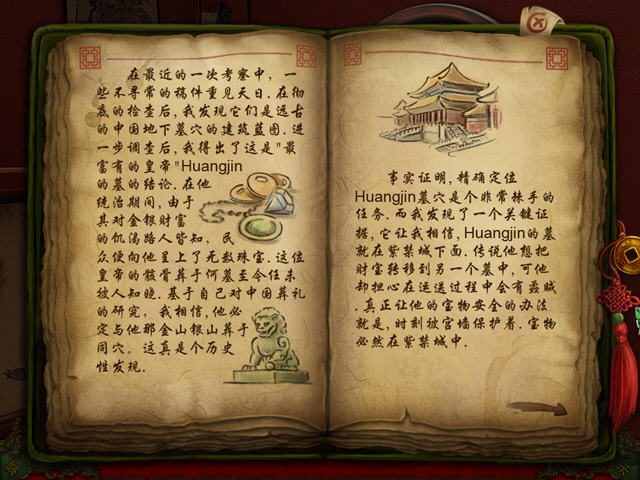 在最近的一次考察中, 一
些不寻常的稿件重见天日. 在彻
底的检查后, 我发现它们是远古
的中国地下墓穴的建筑蓝图. 进
一步调查后, 我得出了这是"最
富有的皇帝"Huangjin
的墓的结论. 在他
统治期间, 由于
其对金银财富
的饥渴路人皆知, 民
众便向他呈上了无数珠宝. 这位
皇帝的骸骨葬于何墓至今任未
被人知晓. 基于自己对中国葬礼
的研究, 我相信, 他必
定与他那金山银山葬于
同穴. 这真是个历史
性发现.
事实证明, 精确定位
Huangjin墓穴是个非常棘手的
任务. 而我发现了一个关键证
据, 它让我相信, Huangjin的墓
就在紫禁城下面. 传说他想把
财宝转移到另一个墓中, 可他
却担心在运送过程中会有盗贼
. 真正让他的宝物安全的办法
就是, 时刻被宫墙保护着. 宝物
必然在紫禁城中.